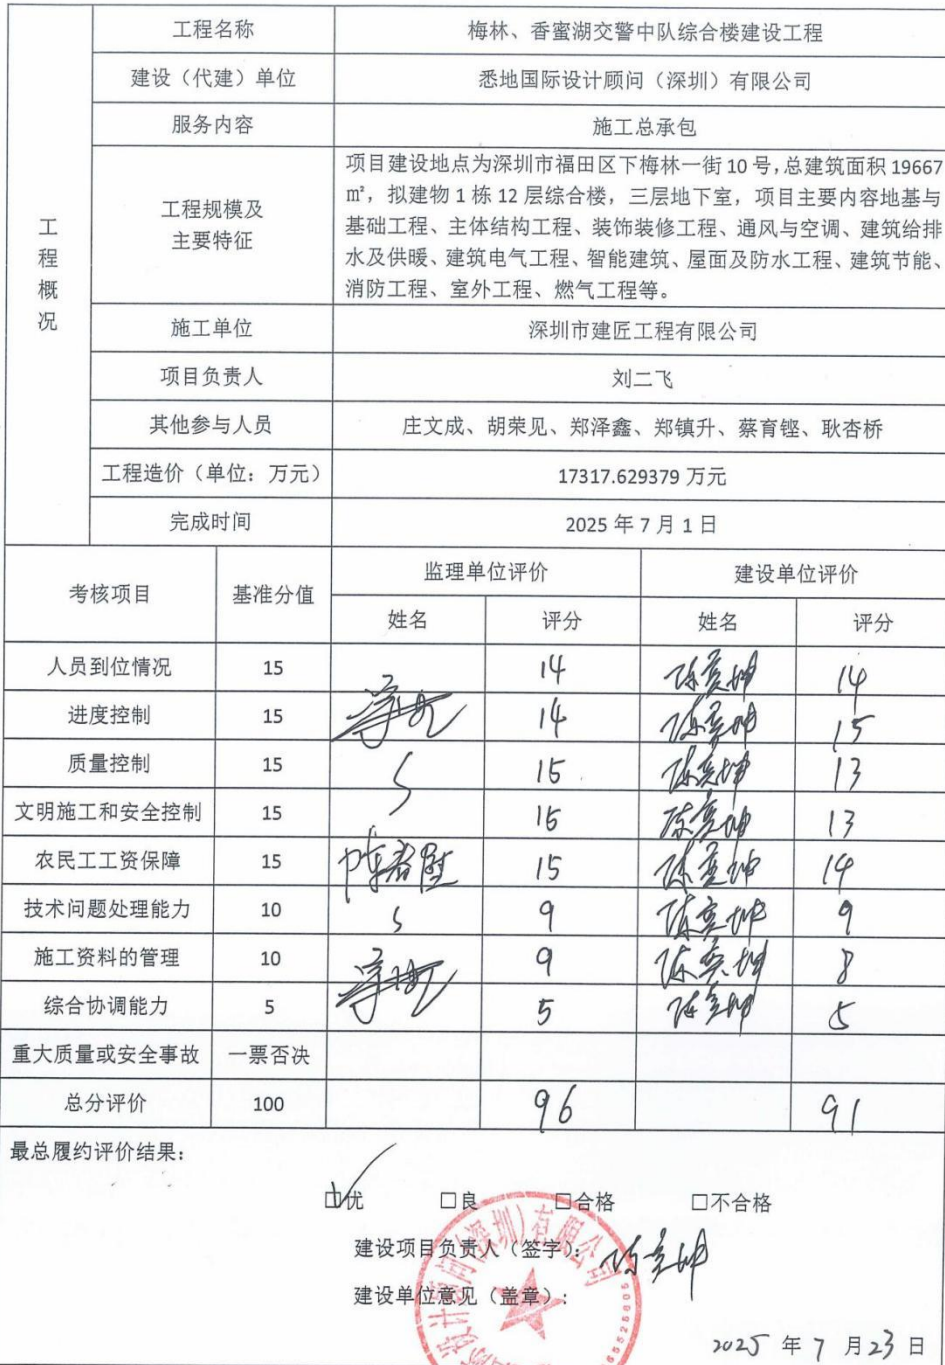 工程概况
工程名称 梅林、香蜜湖交警中队综合楼建设工程
建设（代建）单位 悉地国际设计顾问（深圳）有限公司
服务内容 施工总承包
工程规模及
主要特征
项目建设地点为深圳市福田区下梅林一街10号，总建筑面积19667
㎡，拟建物1栋12层综合楼，三层地下室，项目主要内容地基与
基础工程、主体结构工程、装饰装修工程、通风与空调、建筑给排
水及供暖、建筑电气工程、智能建筑、屋面及防水工程、建筑节能、
消防工程、室外工程、燃气工程等。
施工单位 深圳市建匠工程有限公司
项目负责人 刘二飞
其他参与人员 庄文成、胡荣见、郑泽鑫、郑镇升、蔡育铿、耿杏桥
工程造价（单位：万元） 17317.629379 万元
完成时间 2025 年 7 月 1 日
考核项目 基准分值 监理单位评价 建设单位评价
姓名 评分 姓名 评分
人员到位情况 15 14 14
进度控制 15 14 15
质量控制 15 15 13
文明施工和安全控制 15 15 13
农民工工资保障 15 15 14
技术问题处理能力 10 9 9
施工资料的管理 10 9 8
综合协调能力 5 5 5
重大质量或安全事故 一票否决
总分评价 100 96 91
最总履约评价结果：
☑优 □良 □合格 □不合格
建设项目负责人（签字）：
建设单位意见（盖章）：
2025 年 7 月 23 日
设计顾问（深圳）有限公司